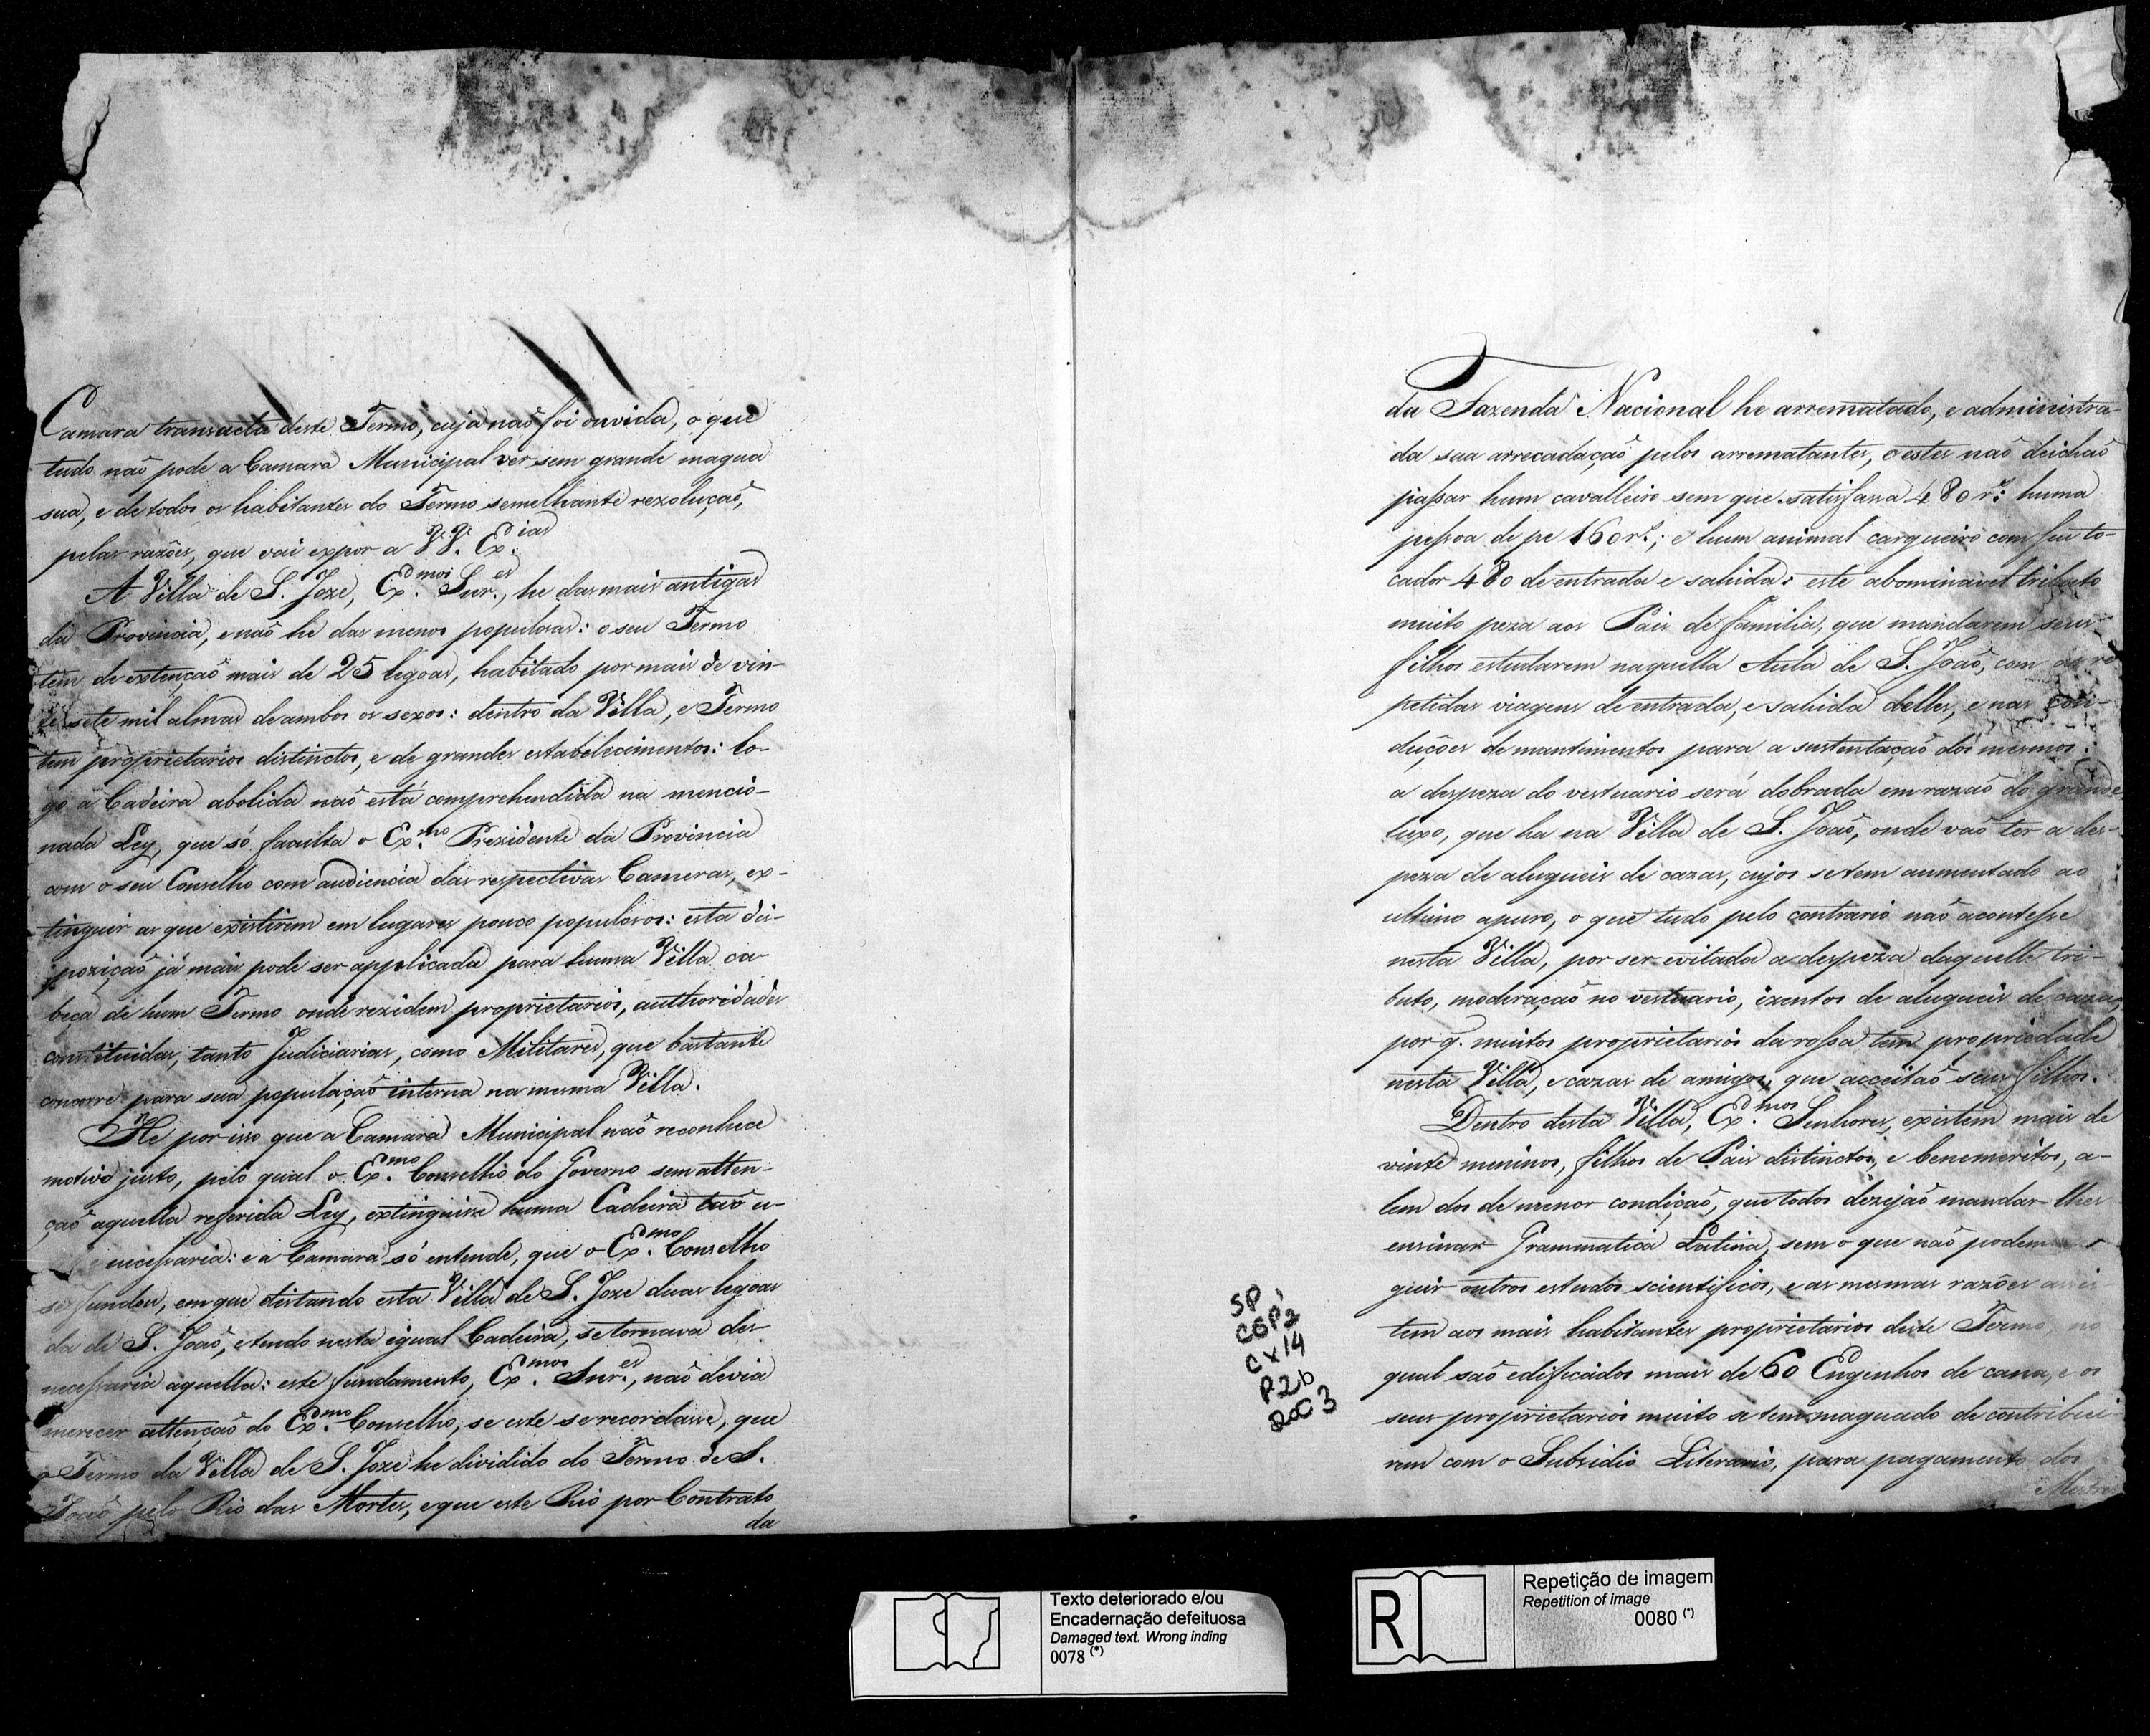 Camara transacta deste Termo, cuja naõ foi ouvida, o que
tudo naõ pode a Camara Municipal ver sem grande magua
sua, e de todos os habitantes do Termo semelhante rezoluçaõ,
pelas razões, que vai expor a VV. Ex.cias
A Villa de S. Joze, Ex.mos Snr.es, he das mais antigas
da Provincia, e naõ he das menos populosas: o seu Termo
tem de extençaõ mais de 25 legoas, habitado por mais de vin-
te sete mil almas de ambos os sexos: dentro da Villa, e Termo
tem proprietarios distinctos, e de grandes estabelecimentos: lo-
go a Cadeira abolida naõ está comprehendida na mencio-
nada Ley, que só faculta o Ex.mo Prezidente da Provincia
com o seu Conselho com audiencia das respectivas Cameras, ex-
tinguir as que existirem em lugares pouco populosos: esta dis-
poziçaõ já mais pode ser applicada para huma Villa ca-
beça de hum Termo onde rezidem proprietarios, authoridades
constituidas, tanto Judiciarias, como Militares, que bastante
concorre para sua populaçaõ interna na mesma Villa.
He por isso que a Camara Municipal naõ reconhece
motivo justo, pelo qual o Ex.mo Conselho do Governo sem atten-
çaõ aquella referida Ley, extinguisse huma Cadeira taõ u-
e necessaria: e a Camara só entende, que o Ex.mo Conselho
se fundou, em que distando esta Villa de S. Joze duas legoas
da de S. Joaõ, e tendo nesta igual Cadeira, se tornava des-
necessaria aquella: este fundamento, Ex.mos Snr.es, naõ devia
merecer attençaõ do Ex.mo Conselho, se este se recordasse, que
o Termo da Villa de S. Joze he dividido do Termo de S.
Joaõ pelo Rio das Mortes, e que este Rio por Contrato
da
da Fazenda Nacional he arrematado, e administra-
da sua arrecadaçaõ pelos arrematantes, e estes naõ deichaõ
passar hum cavalleiro sem que satisfassa 480 r.s: huma
pessoa de pe 160 r.s; e hum animal cargueiro com seu to-
cador 480 de entrada e sahida: este abominavel tributo
muito peza aos Pais de familia, que mandarem seus
filhos estudarem naquella Aula de S. Joaõ, com as re-
petidas viagens de entrada, e sahida delles, e nas con-
duções de mantimentos para a sustentaçaõ dos mesmos:
a despeza do vestuario será dobrada em razaõ do grande
luxo, que ha na Villa de S. Joaõ, onde vaõ ter a des-
peza de alugueis de cazas, cujos se tem aumentado ao
ultimo apuro, o que tudo pelo contrario naõ acontesse
nesta Villa, por ser evitada a despeza daquelle tri-
buto, moderaçaõ no vestuario, izentos de alugueis de cazas,
por q. muitos proprietarios da rossa tem propriedade
nesta Villa, e cazas de amigos, que acceitaõ seus filhos.
Dentro desta Villa, Ex.mos Senhores, existem mais de
vinte meninos, filhos de Pais distinctos, e benemeritos, a-
lem dos de menor condiçaõ, que todos dezejaõ mandar-lhes
ensinar Grammatica Latina, sem o que naõ podem
guir outros estudos scientificos, e as mesmas razões assis-
tem aos mais habitantes proprietarios deste Termo, no
qual saõ edificados mais de 60 Engenhos de cana, e os
seus proprietarios muito se tem maguado de contribui-
rem com o Subsidio Literario, para pagamento dos
Mestres
SP
CGP2
Cx14
P2b
DOC3
Texto deteriorado e/ou
Encadernação defeituosa
Damaged text. Wrong inding
0078 (*)
R
Repetição de imagem
Repetition of image
0080 (*)